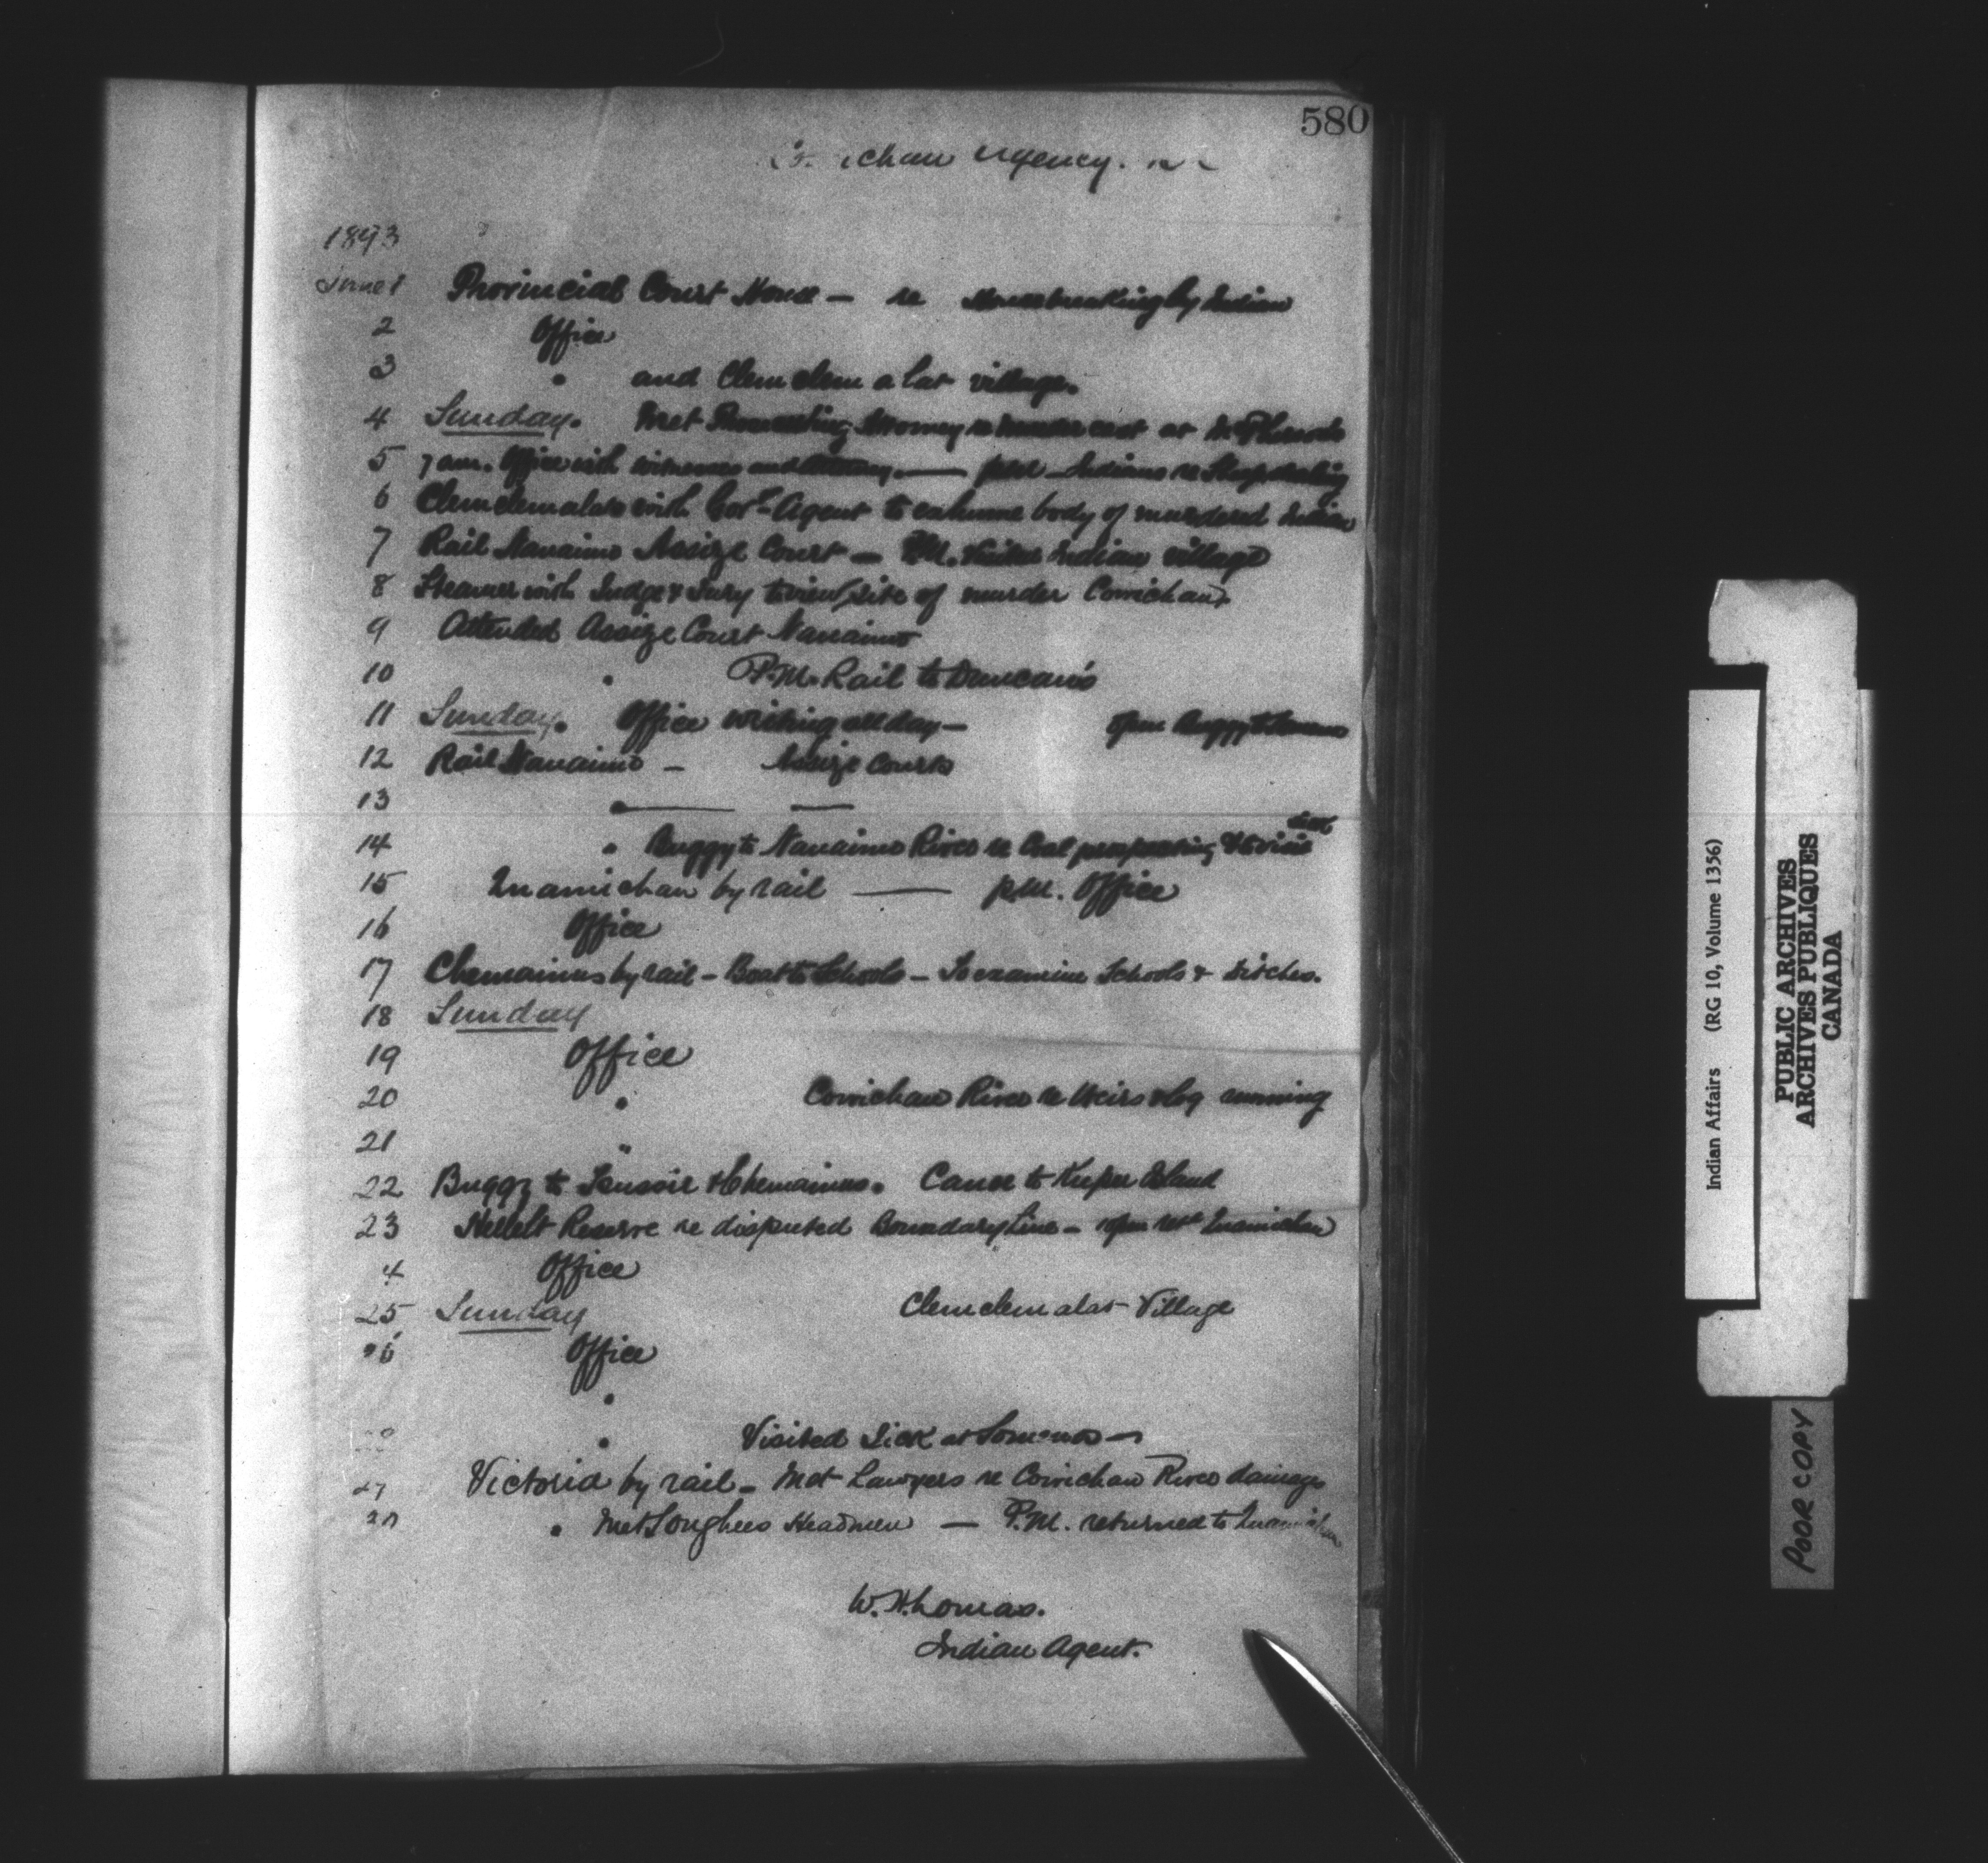 580
Agency.
1893
June 1 Provincial Court House — re Housebreaking by Indian
2 Office
3 " and Clemclemalat village.
4 Sunday. Met Prosecuting Attorney re murder case at
5 7 am. Office with witnesses and — pm Indians re Sheep stealing
6 Clemclemalats with Govt Agent to exhume body of murdered Indian
7 Rail Nanaimo Assize Court — P.M. Visited Indian village
8 Steamer with Judge & Jury to view site of murder Cowichan
9 Attended Assize Court Nanaimo
10 " P.M. Rail to Duncan's
11 Sunday. Office writing all day — Buggy to Somenos
12 Rail Nanaimo — Assize Courts
13 " — —
14 " Buggy to Nanaimo River re Coal prospecting & to visit sick
15 Quamichan by rail — p.m. Office
16 Office
17 Chemainus by rail — Boat to Schools — To examine Schools & ditches.
18 Sunday
19 Office
20 " Cowichan River re Weirs & log running
21 "
22 Buggy to & Chemainus. Canoe to Kuper Island
23 Hellelt Reserve re disputed Boundary Line — Quamichan
4 Office
25 Sunday Clemclemalat Village
26 Office
"
" Visited Sick at Somenos —
Victoria by rail — Met Lawyers re Cowichan River damage
" Met Songhees Headmen — P.M. returned to Quamichan
W. H. Lomas.
Indian Agent.
Indian Affairs (RG 10, Volume 1356)
PUBLIC ARCHIVES
ARCHIVES PUBLIQUES
CANADA
POOR COPY